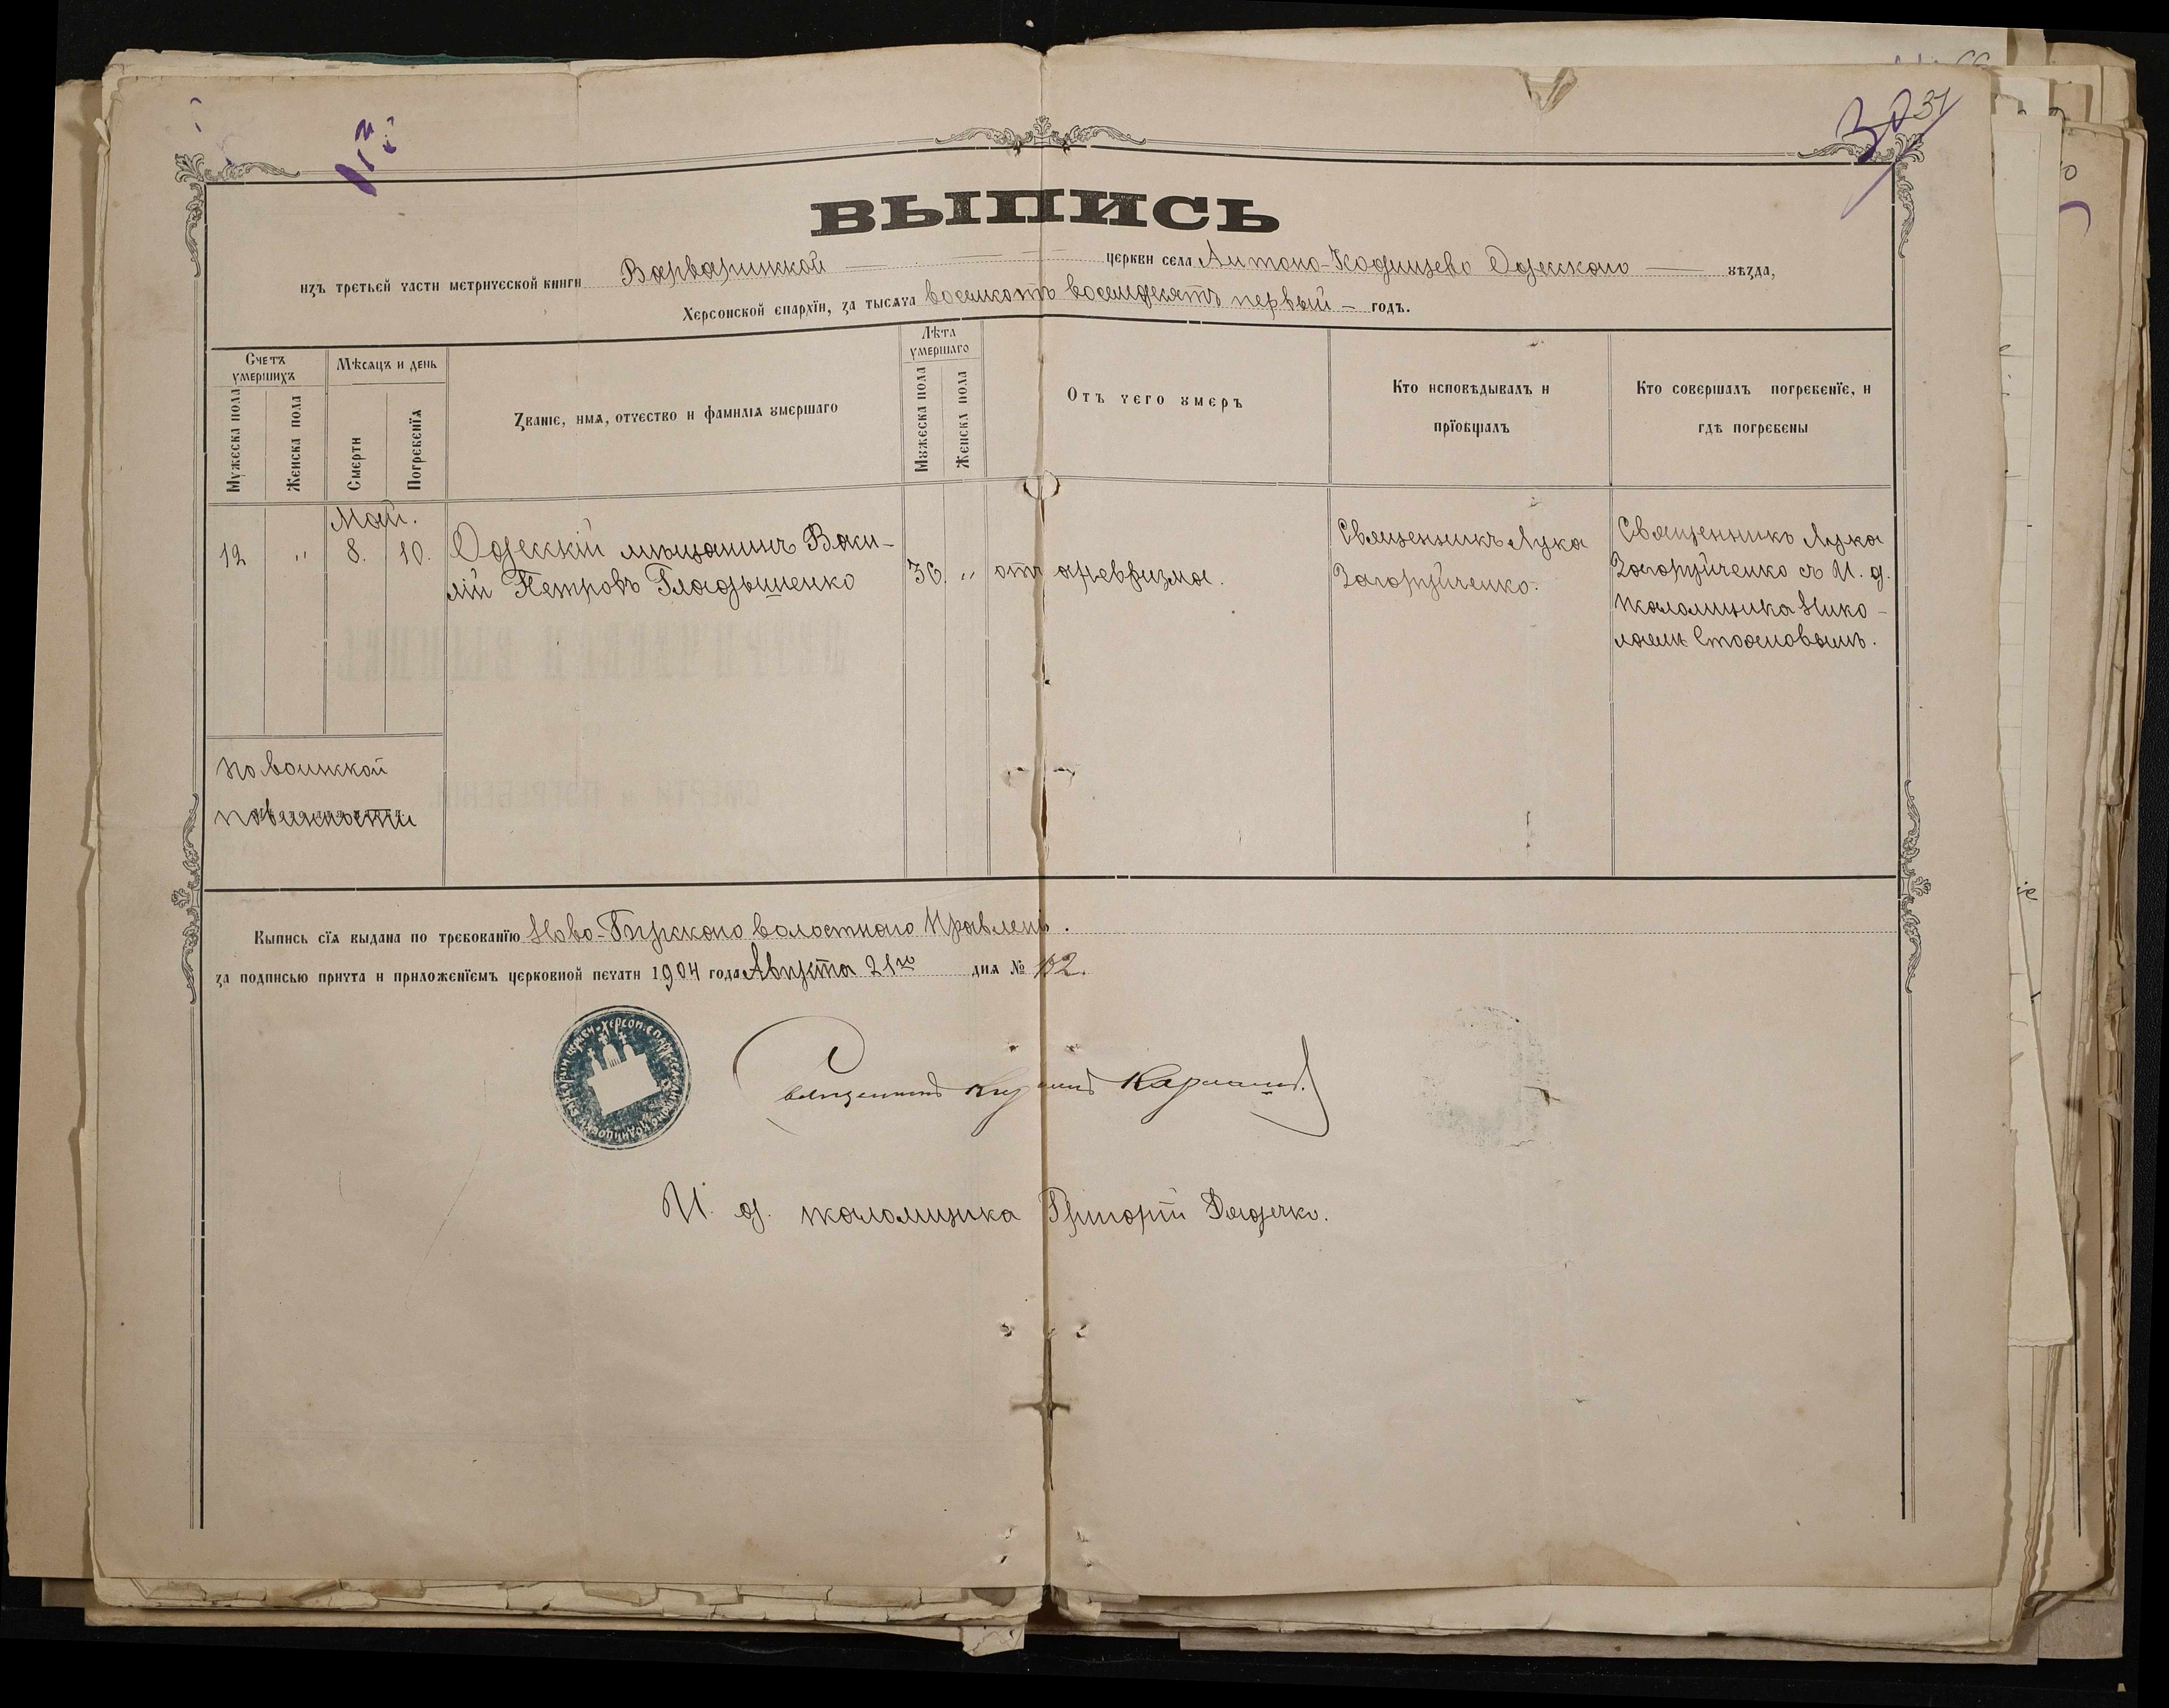 30 31
ВЫПИСЬ
изъ третьей части метрической книги Варваринской церкви села Антоно-Кодинцево Одесскаго уѣзда,
Херсонской епархїи, за тысяча восемсотъ восемдесятъ первый годъ.
Счетъ умершихъ
Мужеска пола
Женска пола
Мѣсяцъ и день
Смерти
Погребенїя
Званїе, имя, отчество и фамилїя умершаго
Лѣта умершаго
Мужеска пола
Женска пола
Отъ чего умеръ
Кто исповѣдывалъ и прїобщалъ
Кто совершалъ погребенїе, и гдѣ погребены
Май.
12 " 8. 10.
Одесскій мѣщанинъ Васи-
лій Петровъ Гладышенко
36. "
отъ аневризма.
Священникъ Лука
Загоруйченко.
Священникъ Лука
Загоруйченко съ И. д.
псаломщика Нико-
лаемъ Стояновымъ.
По воинской
повинности
Выпись сїя выдана по требованїю Ново-Бугскаго волостного Правленія.
за подписью причта и приложенїемъ церковной печати 1904 года Августа 21го дня № 102.
Священникъ
И. д. псаломщика Григорій Дядечко.